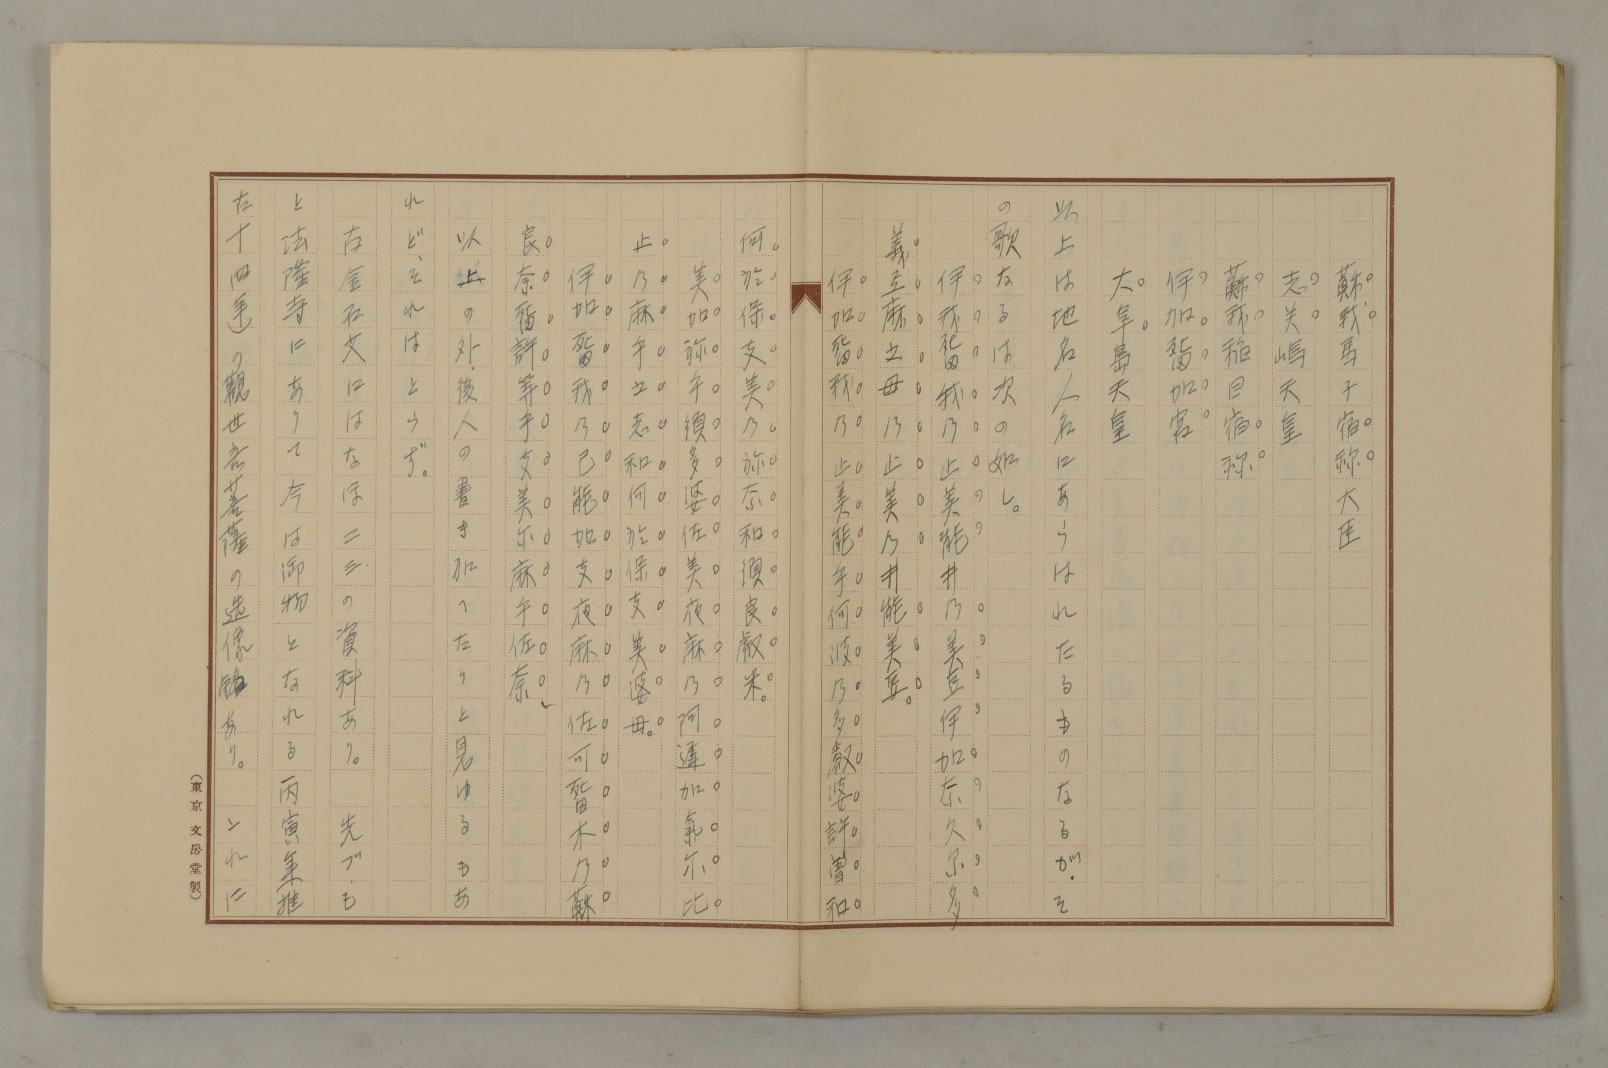 蘇我馬子宿祢大臣
志癸嶋天皇
蘇我稲目宿祢
伊加留加宮
大阜嶋天皇
以上は地名人名にあらはれたるものなるが、そ
の歌なるは次の如し。
伊我留我乃止美能井乃美豆伊加奈久尓多
義弖麻之母乃止美乃井能美豆。
伊加留我乃止美能乎何波乃多叡婆許曽和
何於保支美乃弥奈和須良叡米。
美加弥乎須多婆佐美夜麻乃阿遅加氣尓比
止乃麻乎之志和何於保支美婆母。
伊加留我乃己能加支夜麻乃佐可留木乃蘇
良奈留許等乎支美尓麻乎佐奈
以上の外、後人の書き加へたりと見ゆるもあ
れど、それはとらず。
右金石文にはなほ二三の資料あり。 先づ、も
と法隆寺にありて今は御物となれる丙寅年(推
古十四年)の観世音菩薩の造像銘あり。 これに
(東京 文房堂製)